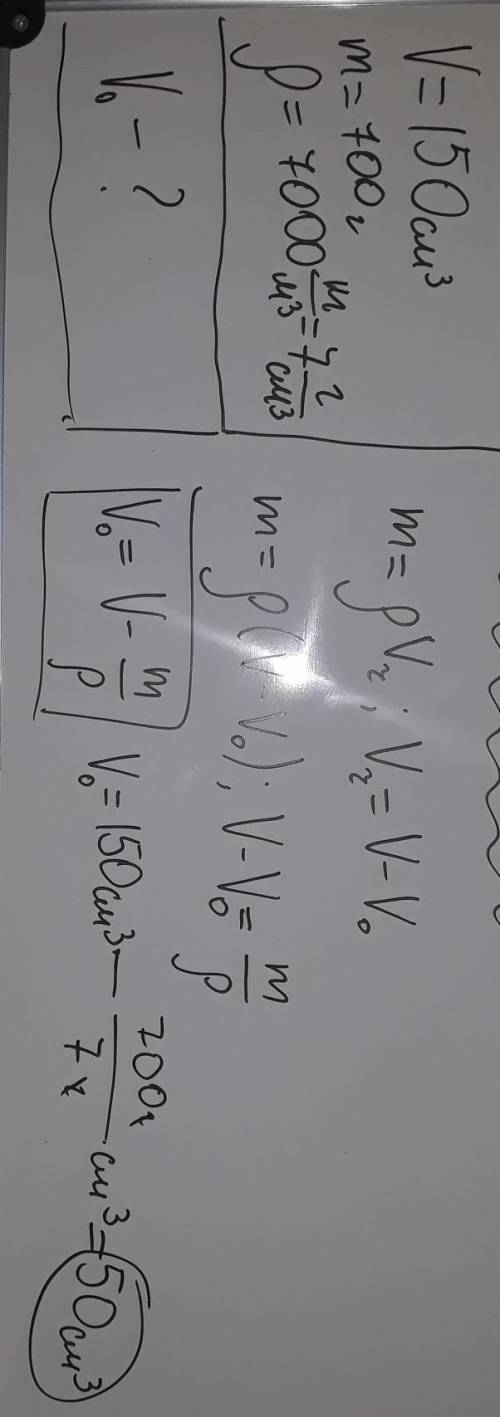 V = 150 см³
m = 700 г
ρ = 7000 m/м³ = 7 г/см³
V₀ - ?
m = ρV₂; V₂ = V - V₀
m = ρ(V - V₀); V - V₀ = m/ρ
V₀ = V - m/ρ V₀ = 150 см³ - 700 г/7 г см³ = 50 см³